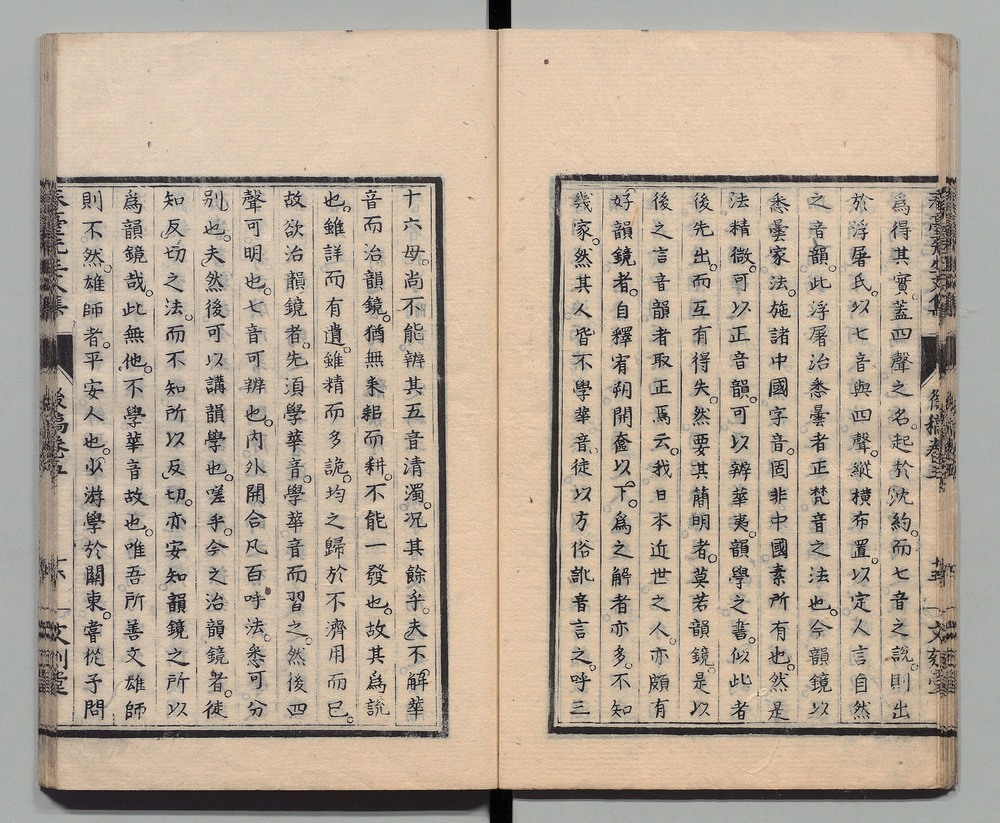 爲得其實。蓋四聲之名。起於沈約。而七音之說。則出
於浮屠氏。以七音與四聲。縱横布置。以定人言自然
之音韻。此浮屠治悉曇者正梵音之法也。今韻鏡以
悉曇家法。施諸中國字音。固非中國素所有也。然是
法精微。可以正音韻。可以辨華夷。韻學之書。似此者
後先出。而互有得失。然要其簡明者。莫若韻鏡。是以
後之言音韻者取正焉云。我日本近世之人。亦頗有
好韻鏡者。自釋宥朔開奩以下。爲之解者亦多。不知
幾家。然其人皆不學華音。徒以方俗訛音言之。呼三
十六母。尚不能辨其五音清濁。況其餘乎。夫不解華
音而治韻鏡。猶無耒耜而耕。不能一發也。故其爲說
也。雖詳而有遺。雖精而多詭。均之歸於不濟用而已。
故欲治韻鏡者。先須學華音。學華音而習之。然後四
聲可明也。七音可辨也。内外開合凡百呼法。悉可分
别也。夫然後可以講韻學也。嗟乎。今之治韻鏡者。徒
知反切之法。而不知所以反切。亦安知韻鏡之所以
爲韻鏡哉。此無他。不學華音故也。唯吾所善文雄師
則不然。雄師者。平安人也。少游學於關東。嘗從予問
後稿卷五